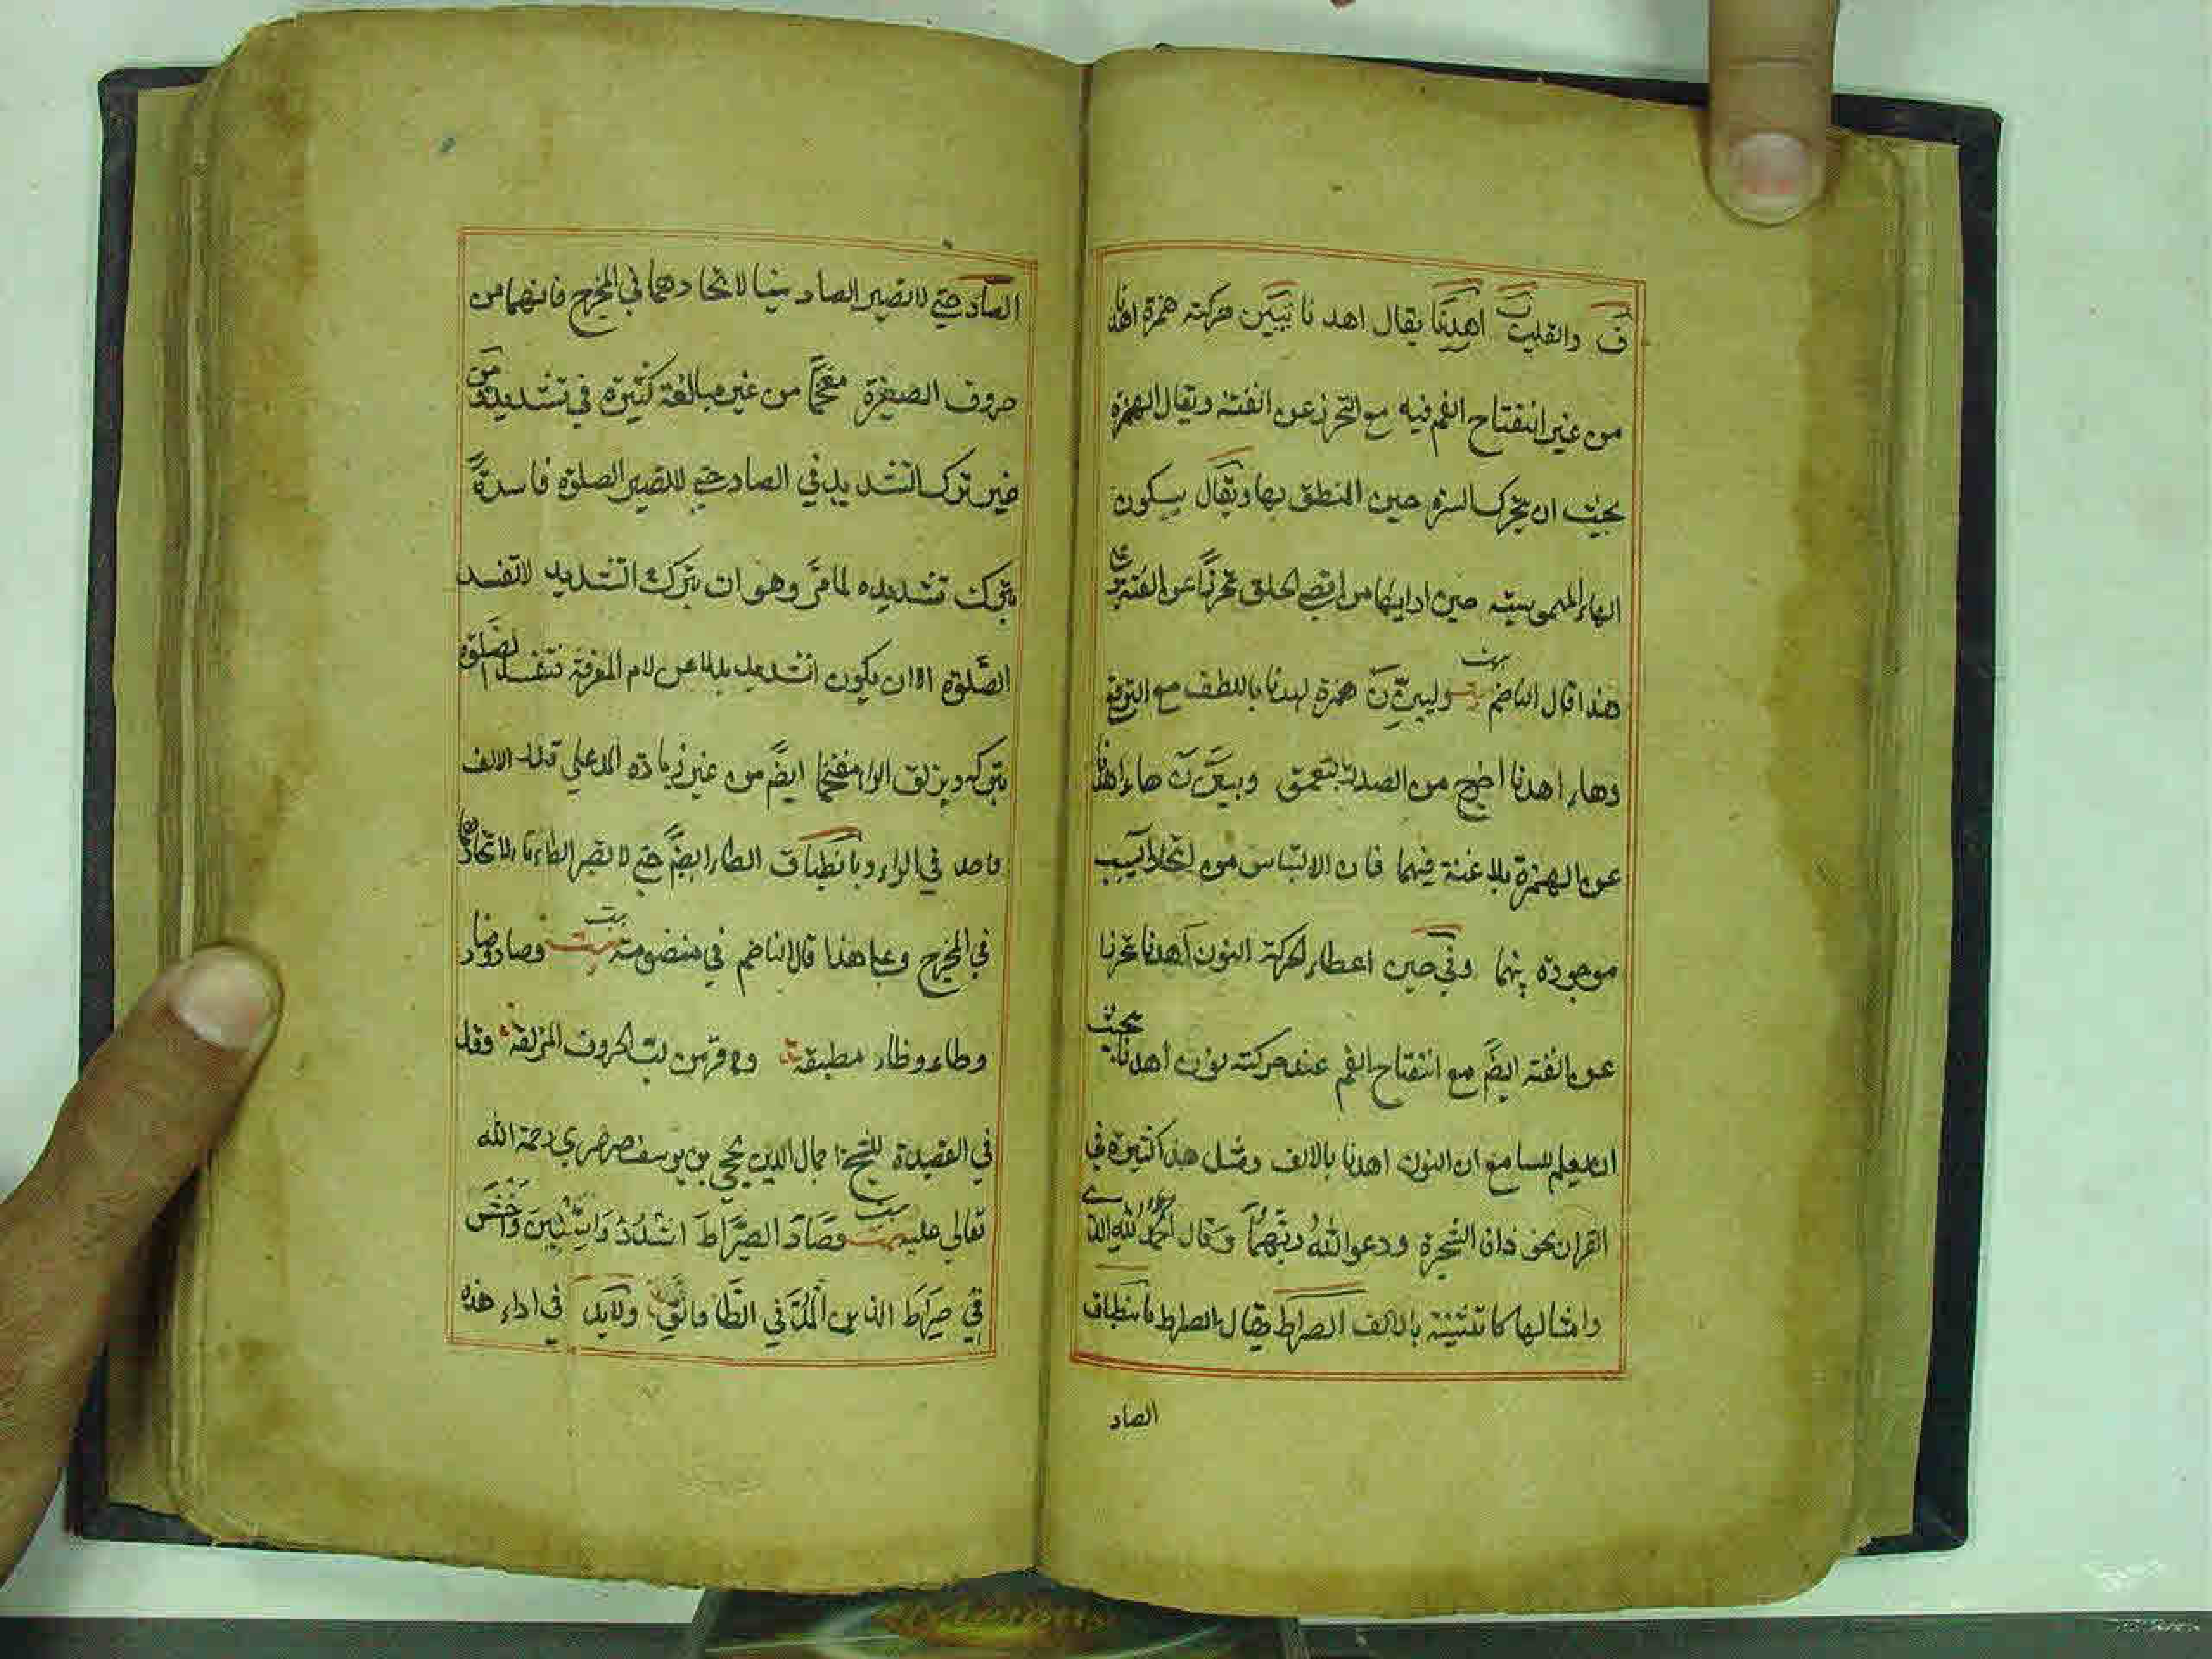 ف والقليت اهدنا يقال اهدنا تبيين حركته همزة اهدنا
من غير انفتاح الفم فيه مع التحرز عن الغنة ويقال الهمزة
بحيث ان يحرك السرة حين النطق بها ويقال بسكون
الهاء المهموسية حين ادايها من اقصى الحلق تحرزا عن الغنة
هذا قال الناضم بيت همزة اهدنا باللطف مع الترقيق
وهاء اهدنا اخرج من الصدر بتعمق وبين هاء اهدنا
عن الهمزة بلا غنة فيهما فان الالتباس من
موجودة بينهما وفي حين اعطاء لحركة النون اهدنا تحرزا
عن الغنة ايضا مع انفتاح الفم عند حركته نون اهدنا بحيث
ان يعلم السامع ان النون اهدنا بالالف ومثل هذا كثيرة في
القران نحو ذاق الشجرة ودعوا الله ربهما وقال الحمد لله الذي
وامثالها كا تثنية بالالف الصراط ويقال الصراط بانطباق
الصاد
الصاد حتى لا تصير الصاد سينا لاتحادهما في المخرج فانهما من
حروف الصفيرة مفخما من غير مبالغة كثيرة في تشديده من
غير ترك التشديد في الصاد حتى لا تصير الصلوة فاسدة
بترك تشديده لما مر وهو ان بترك التشديد لا تفسد
الصلوة الا ان يكون التشديد بدلا عن لام المعرفة تفسد الصلوة
بتركه ويزلق الراء مفخما ايضا من غير زيادة المد على قدر الالف
واحد في الراء وبانطباق الطاء ايضا حتى لا تصير الطاء تاء لاتحادهما
في المخرج وعلى هذا قال الناضم في منضومته بيت وصاد وضاد
وطاء وظاء مطبقة الحروف المزلقة وقد
في القصيدة للشيخ جمال الدين يحيى بن يوسف صرصري رحمة الله
تعالى عليه بيت وصاد الصراط اشدد
في صراط الذين المد في الطا ولابد في اداء هذه